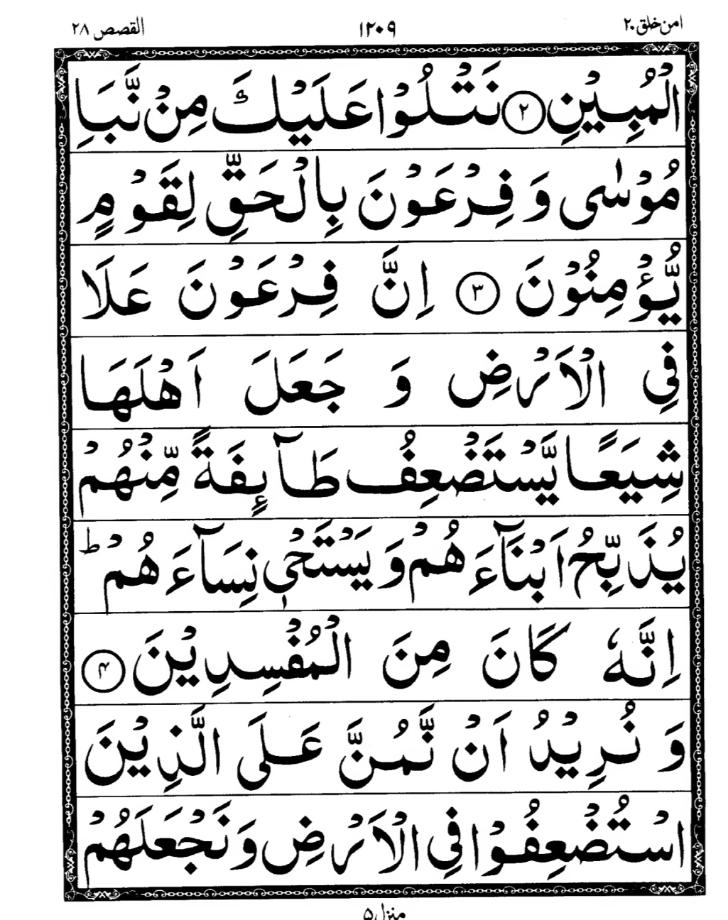 امن خلق ۲۰ ۱۲۰۹ القصص ۲۸
الْمُبِیْنِ ﴿۲﴾ نَتْلُوْا عَلَیْكَ مِنْ نَّبَاِ
مُوْسٰی وَ فِرْعَوْنَ بِالْحَقِّ لِقَوْمٍ
یُّؤْمِنُوْنَ ﴿۳﴾ اِنَّ فِرْعَوْنَ عَلَا
فِی الْاَرْضِ وَ جَعَلَ اَهْلَهَا
شِیَعًا یَّسْتَضْعِفُ طَآىِٕفَةً مِّنْهُمْ
یُذَبِّحُ اَبْنَآءَ هُمْ وَ یَسْتَحْیٖ نِسَآءَ هُمْ ؕ
اِنَّهٗ كَانَ مِنَ الْمُفْسِدِیْنَ ﴿۴﴾
وَ نُرِیْدُ اَنْ نَّمُنَّ عَلَی الَّذِیْنَ
اسْتُضْعِفُوْا فِی الْاَرْضِ وَ نَجْعَلَهُمْ
منزل ۵